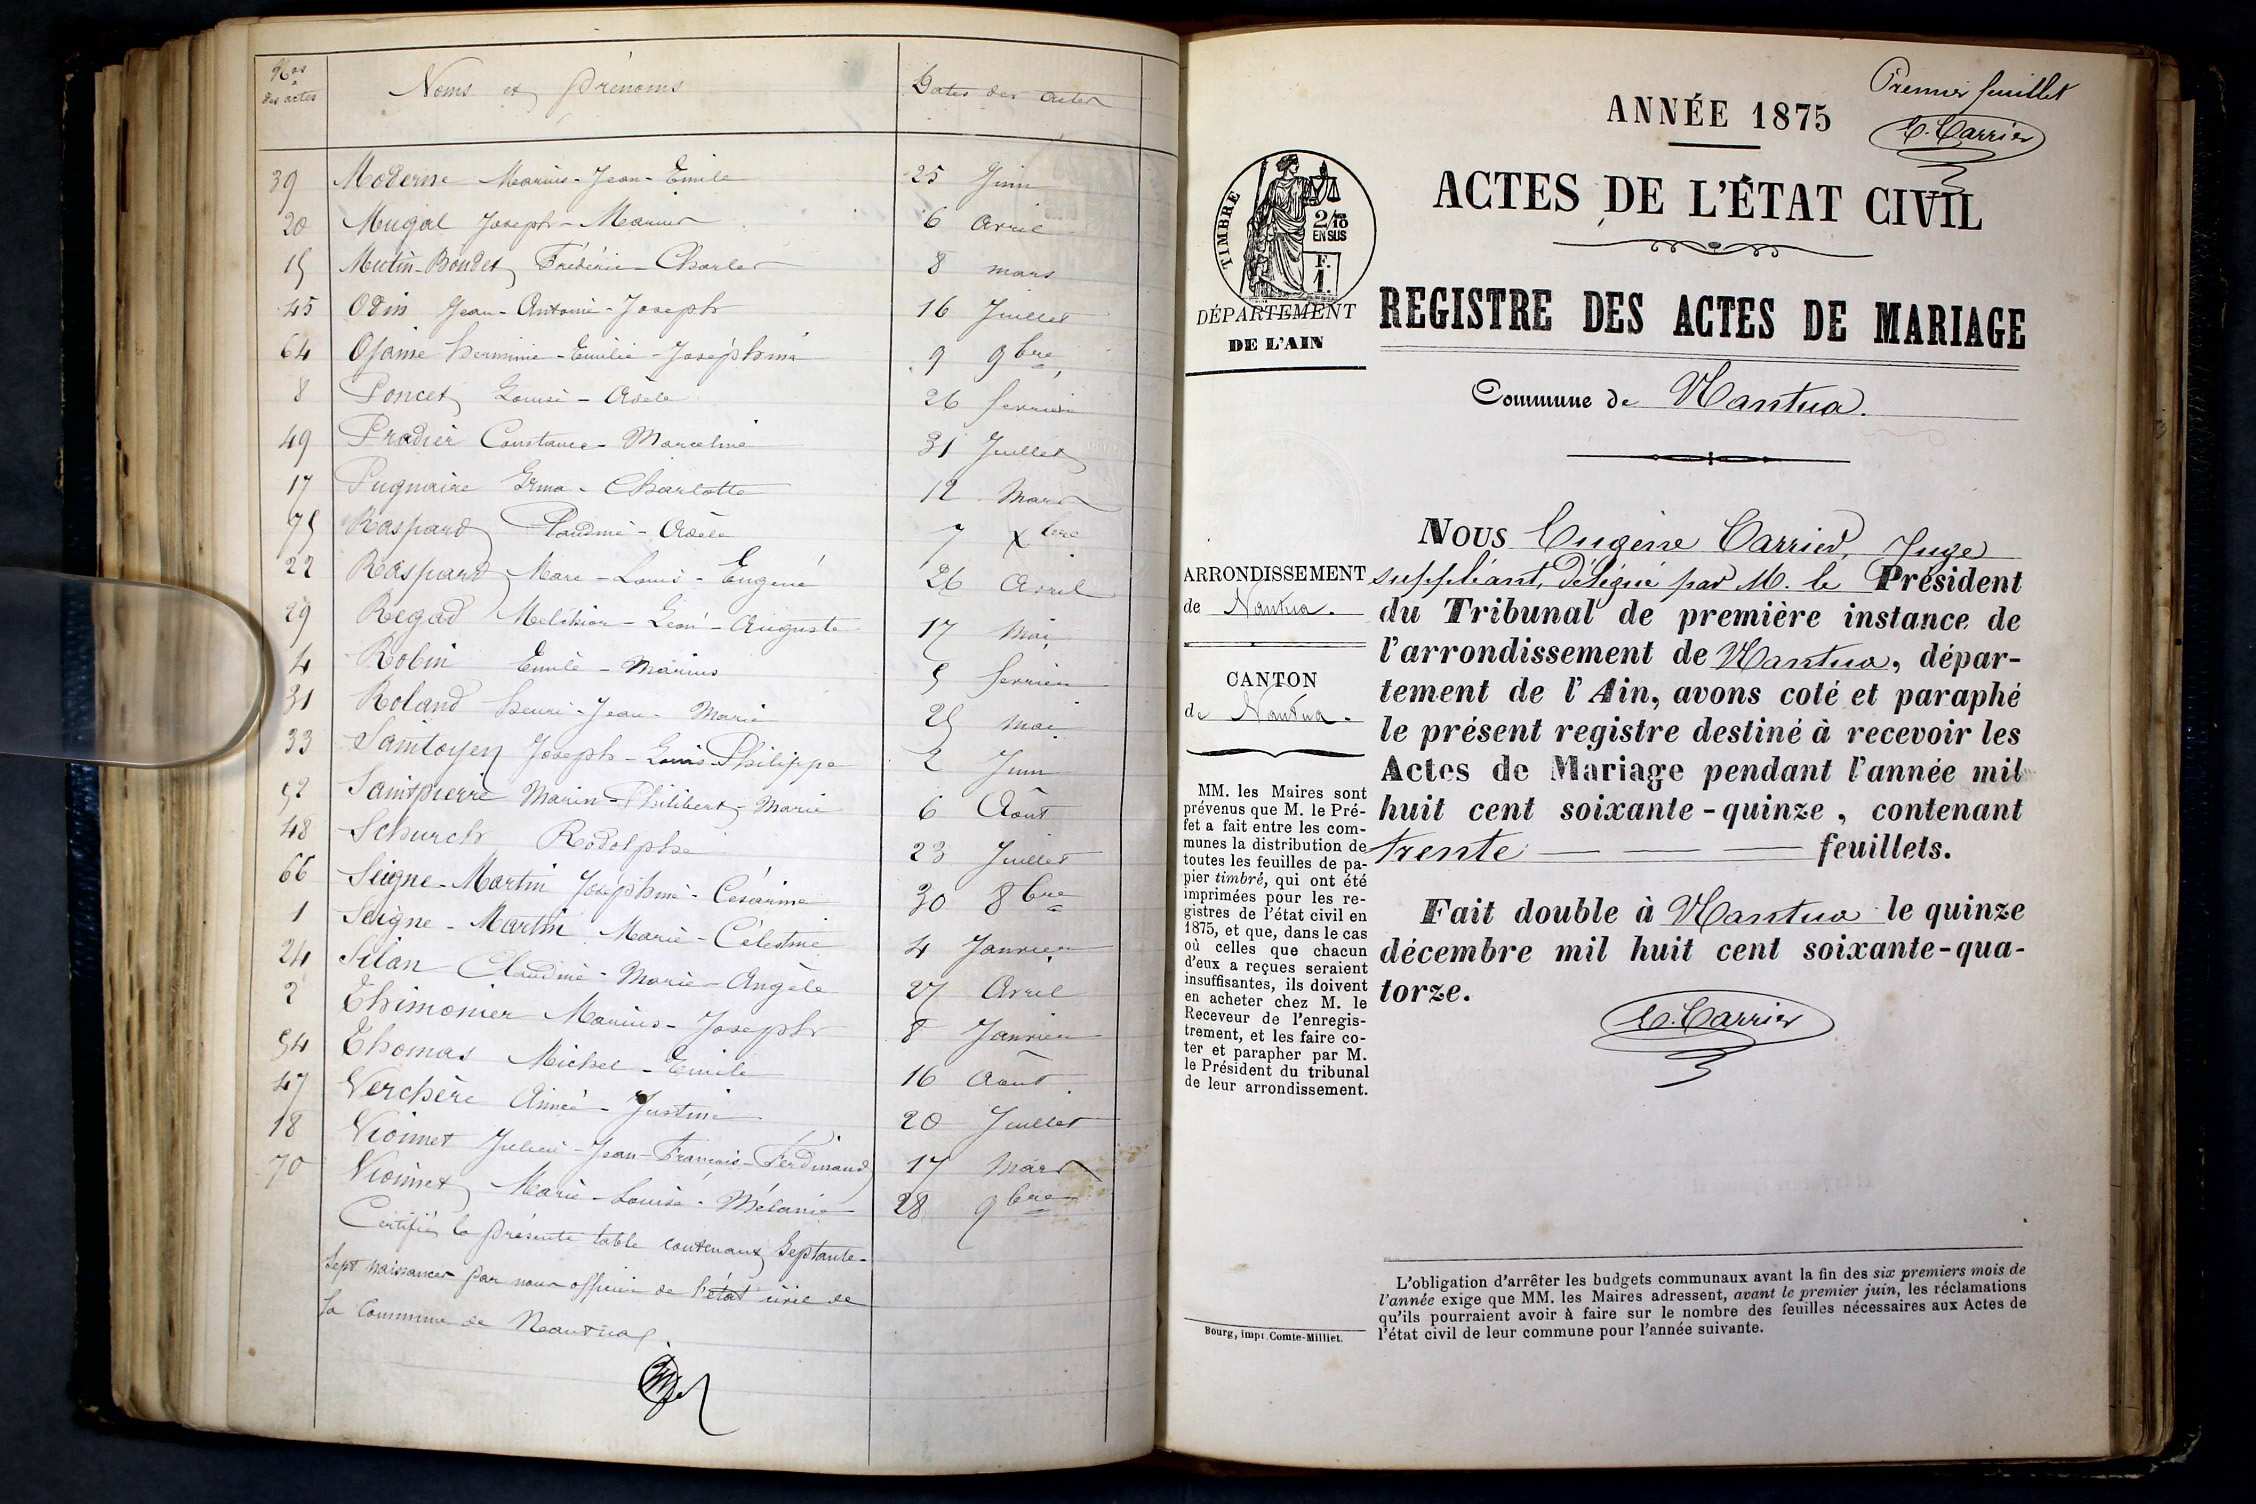 Nos des actes Noms et Prénoms Dates des actes
39 Moderne Marius-Jean-Emile 25 Juin
20 Mugal Joseph-Marius 6 avril
15 Mutin-Boudet Frédéric-Charles 8 mars
45 Odin Jean-Antoine-Joseph 16 Juillet
64 Ojame hermine-Emilie-Joséphine 9 9bre
8 Poncet Louise-Adèle 26 février
49 Pradier Constance-Marceline 31 Juillet
17 Pugnaire Irma-Charlotte 12 Mars
75 Raspard Claudine-Adèle 7 Xbre
22 Raspard Marc-Louis-Eugène 26 Avril
29 Regad Melchior-Léon-Auguste 17 Mai
4 Robin Emile-Marius 5 février
31 Roland henri-Jean-Marie 25 mai
33 Saintoyen Joseph-Louis-Philippe 2 Juin
52 Saintpierre Marin-Philibert-Marie 6 Août
48 Schurch Rodolphe 23 Juillet
66 Seigne-Martin Joséphine-Césarine 30 8bre
1 Seigne-Martin Marie-Célestine 4 Janvier
24 Silan Claudine-Marie-Angèle 27 Avril
2 Thimonier Marius-Joseph 8 Janvier
54 Thomas Michel-Emile 16 Août
47 Verchère Aimée-Justine 20 Juillet
18 Vionnet Julien-Jean-François-Ferdinand 17 Mars
70 Vionnet Marie-Louise-Mélanie 28 9bre
Certifié la présente table contenant Septante-
Sept naissances par nous officier de l'état civil de
la Commune de Nantua.
Premier feuillet
E. Carrier
ANNÉE 1875
ACTES DE L'ÉTAT CIVIL
TIMBRE
2/10
EN SUS
F.
1.
DÉPARTEMENT
DE L'AIN
REGISTRE DES ACTES DE MARIAGE
Commune de Nantua.
ARRONDISSEMENT
de Nantua.
CANTON
de Nantua.
MM. les Maires sont
prévenus que M. le Pré-
fet a fait entre les com-
munes la distribution de
toutes les feuilles de pa-
pier timbré, qui ont été
imprimées pour les re-
gistres de l'état civil en
1875, et que, dans le cas
où celles que chacun
d'eux a reçues seraient
insuffisantes, ils doivent
en acheter chez M. le
Receveur de l'enregis-
trement, et les faire co-
ter et parapher par M.
le Président du tribunal
de leur arrondissement.
Bourg, impr. Comte-Milliet.
NOUS Eugène Carrier, Juge
suppléant, délégué par M. le Président
du Tribunal de première instance de
l'arrondissement de Nantua, dépar-
tement de l'Ain, avons coté et paraphé
le présent registre destiné à recevoir les
Actes de Mariage pendant l'année mil
huit cent soixante-quinze, contenant
trente feuillets.
Fait double à Nantua le quinze
décembre mil huit cent soixante-qua-
torze.
E. Carrier
L'obligation d'arrêter les budgets communaux avant la fin des six premiers mois de
l'année exige que MM. les Maires adressent, avant le premier juin, les réclamations
qu'ils pourraient avoir à faire sur le nombre des feuilles nécessaires aux Actes de
l'état civil de leur commune pour l'année suivante.